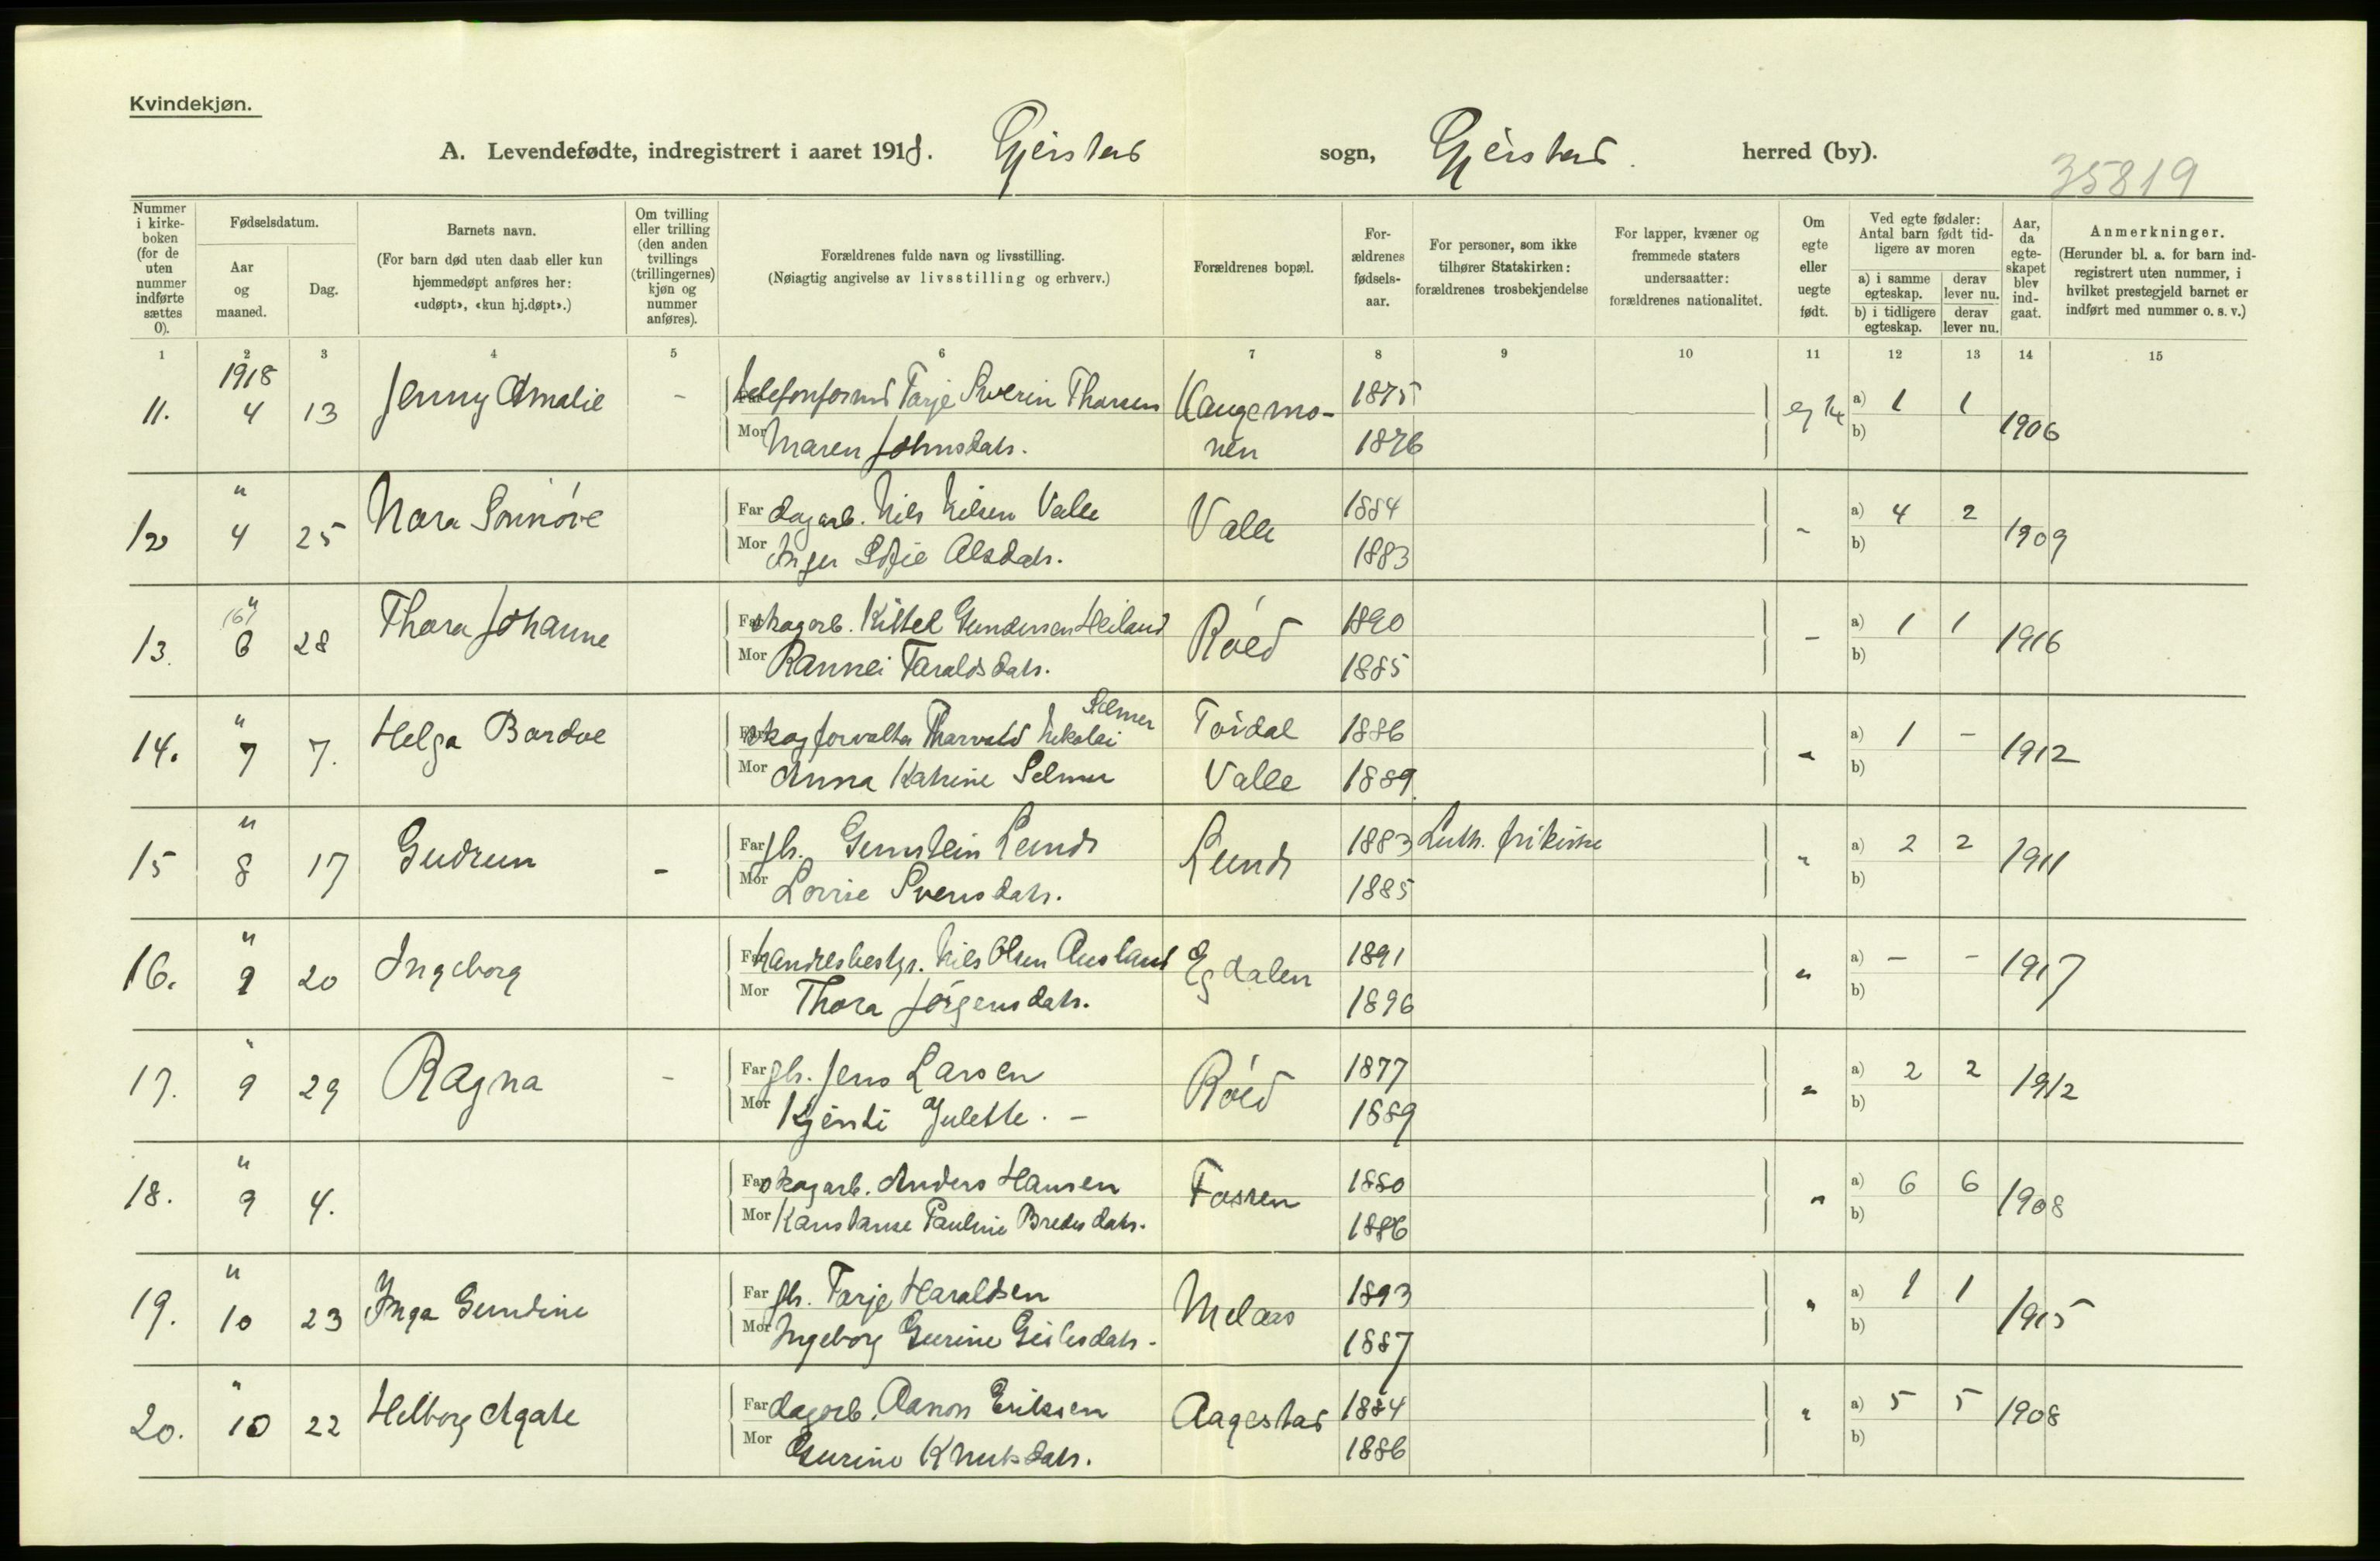 Kvindekjøn.
A. Levendefødte, indregistrert i aaret 1918. Gjerstad sogn, Gjerstad. herred (by).
35819
Nummer i kirke- boken (for de uten nummer indførte sættes 0).
Fødselsdatum.
Aar og maaned.
Dag.
Barnets navn.
(For barn død uten daab eller kun hjemmedøpt anføres her: «udøpt», «kun hj.døpt».)
Om tvilling eller trilling (den anden tvillings (trillingernes) kjøn og nummer anføres).
Forældrenes fulde navn og livsstilling.
(Nøiagtig angivelse av livsstilling og erhverv.)
Forældrenes bopæl.
For- ældrenes fødsels- aar.
For personer, som ikke tilhører Statskirken: forældrenes trosbekjendelse
For lapper, kvæner og fremmede staters undersaatter: forældrenes nationalitet.
Om egte eller uegte født.
Ved egte fødsler: Antal barn født tid- ligere av moren
a) i samme egteskap.
derav lever nu.
b) i tidligere egteskap.
derav lever nu.
Aar, da egte- skapet blev ind- gaat.
Anmerkninger.
(Herunder bl. a. for barn ind- registrert uten nummer, i hvilket prestegjeld barnet er indført med nummer o. s. v.)
1 2 3 4 5 6 7 8 9 10 11 12 13 14 15
1918
11. 4 13 Jenny Amalie - Telefonformd Tarje Severin Thorsen 1875 egte a) 1 1 1906
Mor Maren Johnsdatr. 1876 b)
" 12 4 25 Nora Sonnóve Far dagarb. Nils Nilsen Valle Valle 1884 - a) 4 2 1909
Mor Inger Sofie Alsdatr. 1883 b)
" (6) 13. 6 28 Thora Johanne Far skogarb. Kittel Gundersen Heiland Róed 1890 - a) 1 1 1916
Mor Rannei Taraldsdatr. 1885 b)
" 14. 7 7. Helga Bordoe Far skogforvalter Tharvald Nikolai Selmer Tovdal 1886 " a) 1 - 1912
Mor Anna Katrine Selmer Valle 1889. b)
" 15 8 17 Gudrun - Far gb. Gunstein Lund Lund 1883 Luth. frikirke " a) 2 2 1911
Mor Lovise Svensdatr. 1885 b)
" 16. 9 20 Ingeborg Far handelsbestyr. Nils Olsen Ausland Egdalen 1891 " a) - - 1917
Mor Thora Jörgensdatr. 1896 b)
" 17. 9 29 Ragna - Far gb. Jens Larsen Róed 1877 " a) 2 2 1912
Mor Kjersti Julette. - 1889 b)
" 18. 9 4. Far skogarb. Anders Hansen Fossen 1880 " a) 6 6 1908
Mor Konstanse Pauline Bredesdatr. 1886 b)
" 19. 10 23 Inga Gundine Far gb. Tarje Haraldsen Melaas 1893 " a) 1 1 1915
Mor Ingeborg Gurine 1887 b)
" 20. 10 22 Helborg Agate Far dagarb. Aanon Eriksen Aagestad 1884 " a) 5 5 1908
Mor Gurine Knutsdatr. 1886 b)